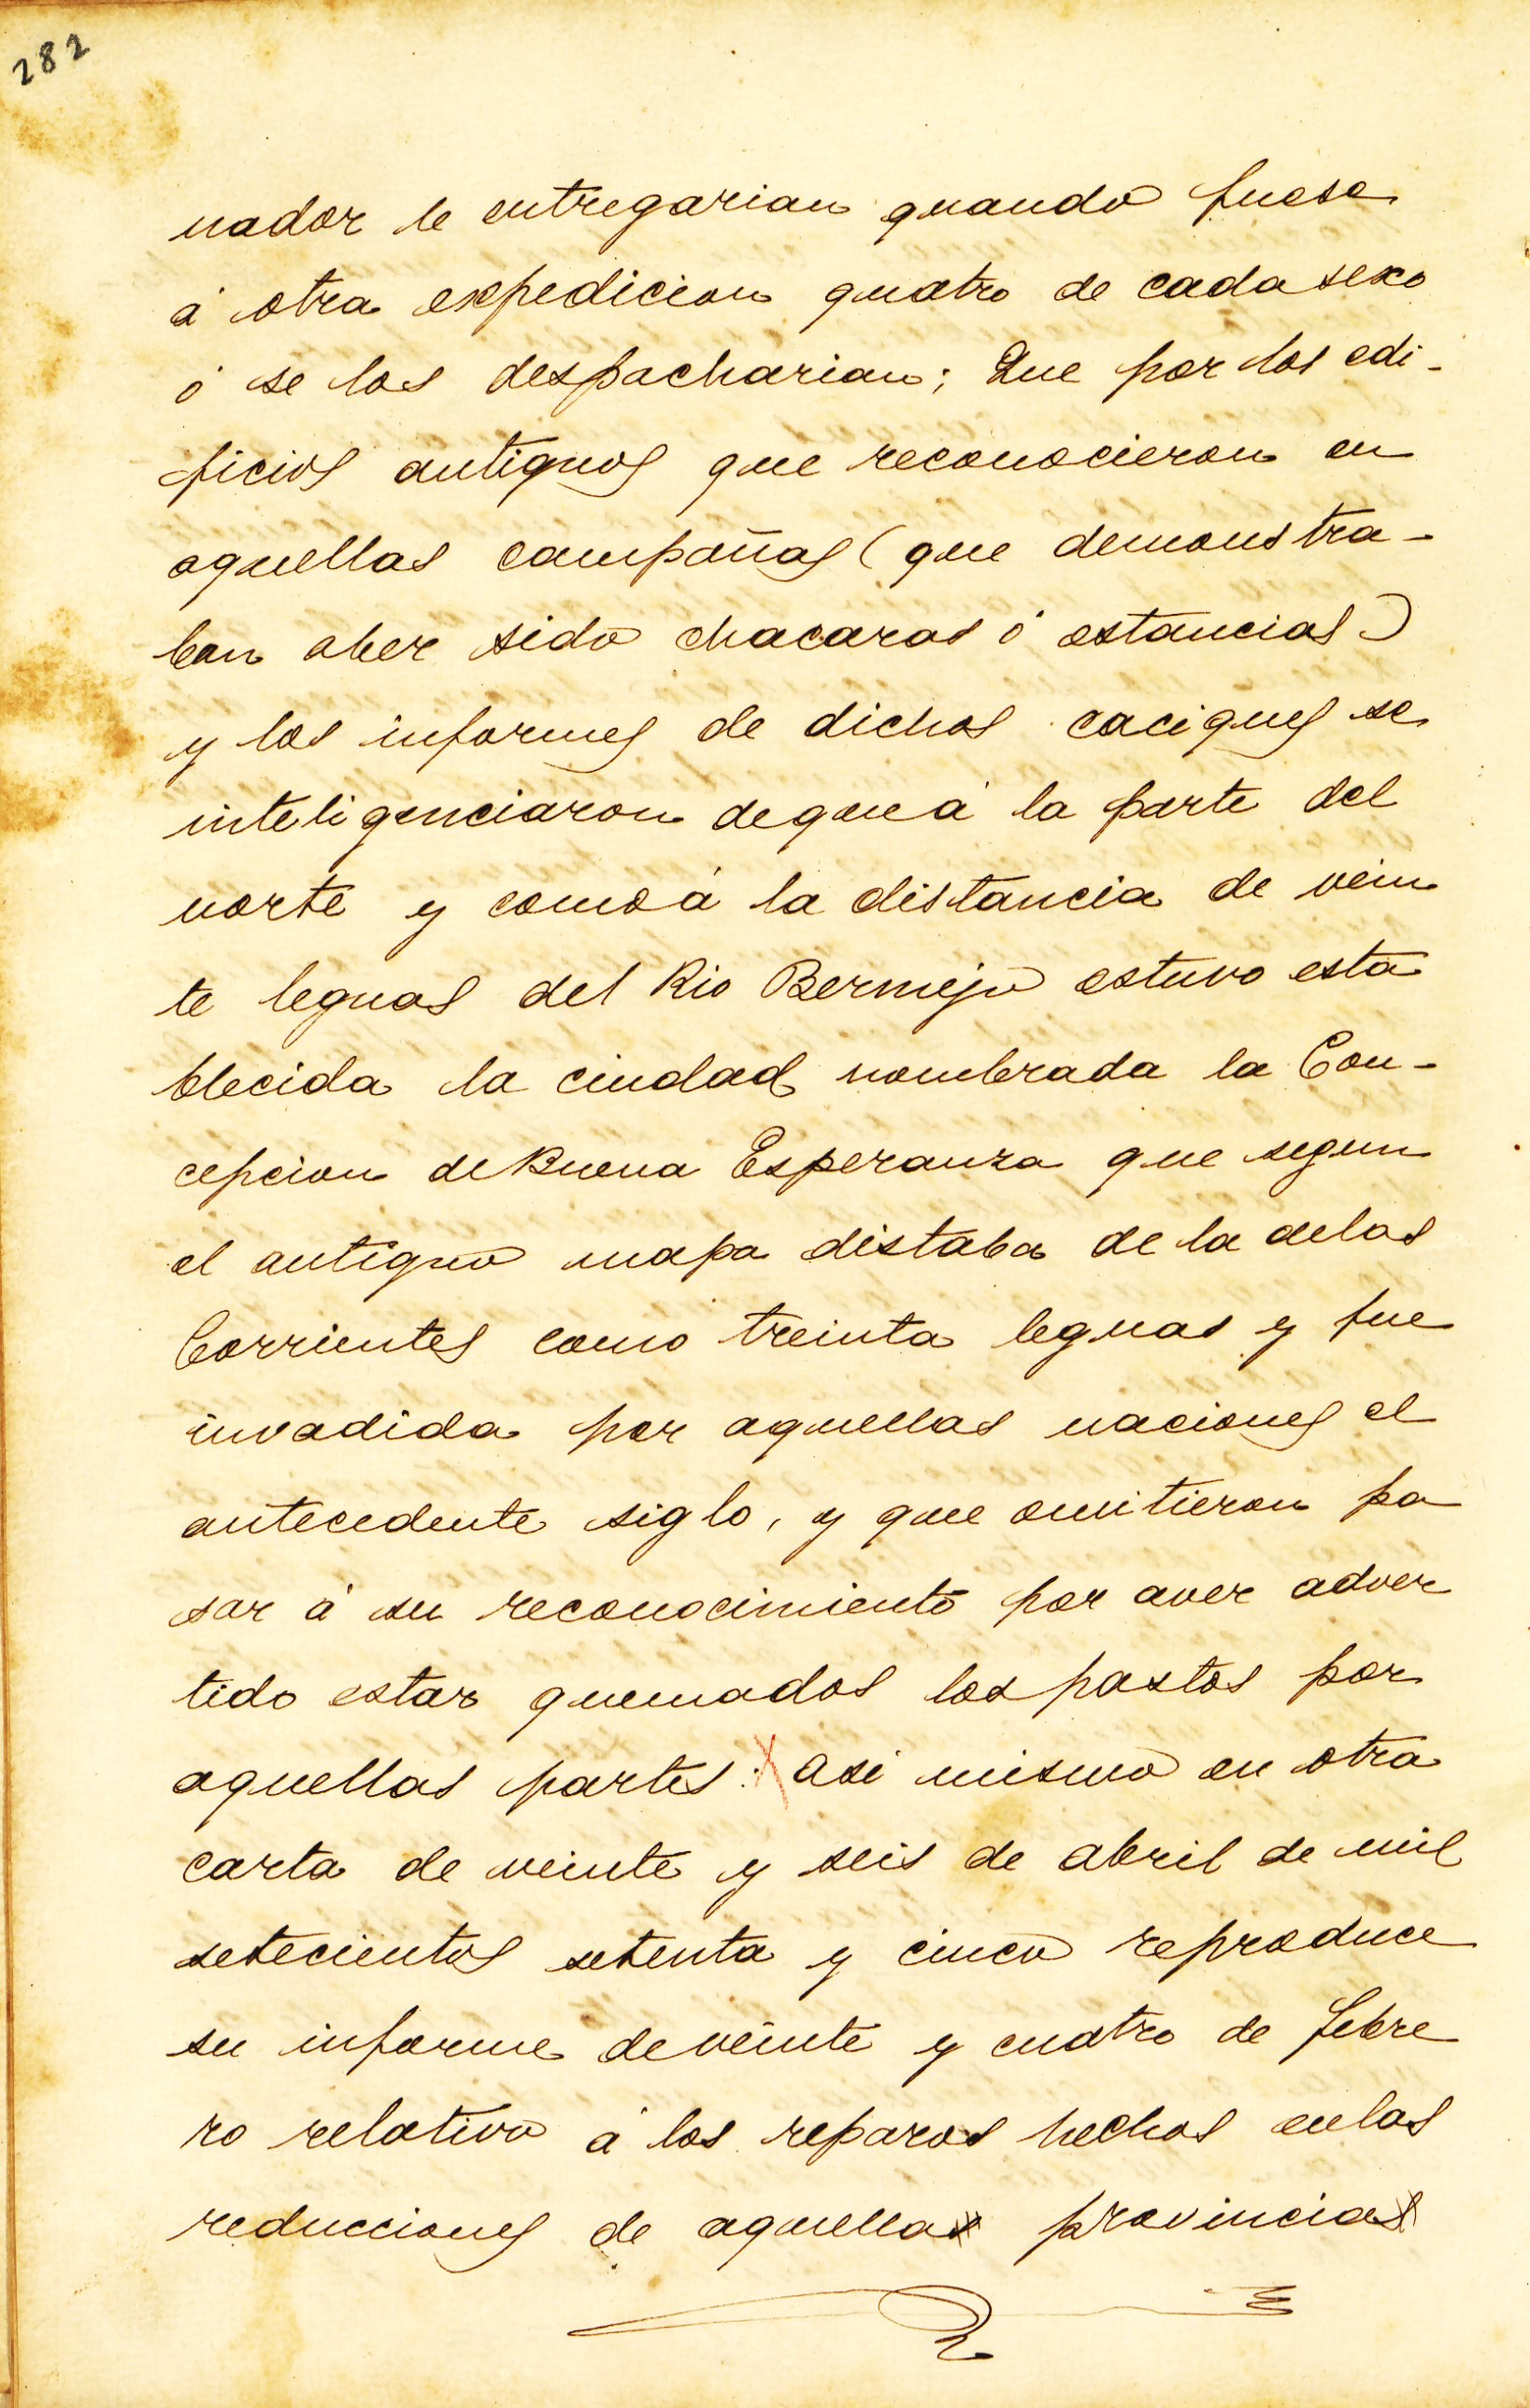 282
nador le entregarian quando fuese
á otra expedicion quatro de cada sexo
ó se los despacharian; Que por los edi-
ficios antiguos que reconocieron en
aquellas campañas (que demonstra-
ban aber sido chacaras ó estancias)
y los informes de dichos caciques se
inteligenciaron de que á la parte del
norte y como á la distancia de vein
te leguas del Rio Bermejo estuvo esta
blecida la ciudad nombrada la Con-
cepcion de Buena Esperanza que segun
el antiguo mapa distaba de la de las
Corrientes como treinta leguas y fue
invadida por aquellas naciones el
antecedente siglo, y que omitieron pa
sar á su reconocimiento por aver adver
tido estar quemados los pastos por
aquellas partes: Asi mismo en otra
carta de veinte y seis de abril de mil
setecientos setenta y cinco reproduce
su informe de veinte y cuatro de febre
ro relativo á los reparos hechos en las
reducciones de aquella provincia